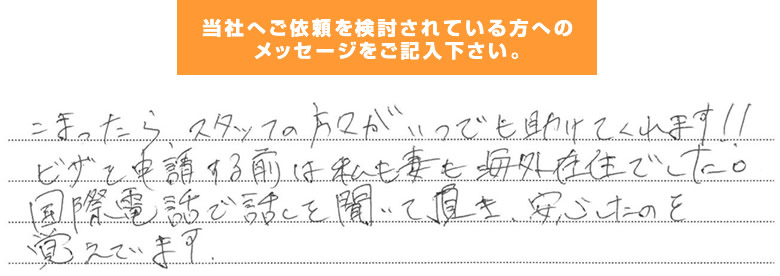 当社へご依頼を検討されている方への
メッセージをご記入下さい。
こまったら、スタッフの方々がいつでも助けてくれます!!
ビザを申請する前は私も妻も海外在住でした。
国際電話で話しを聞いて頂き、安心したのを
覚えています.